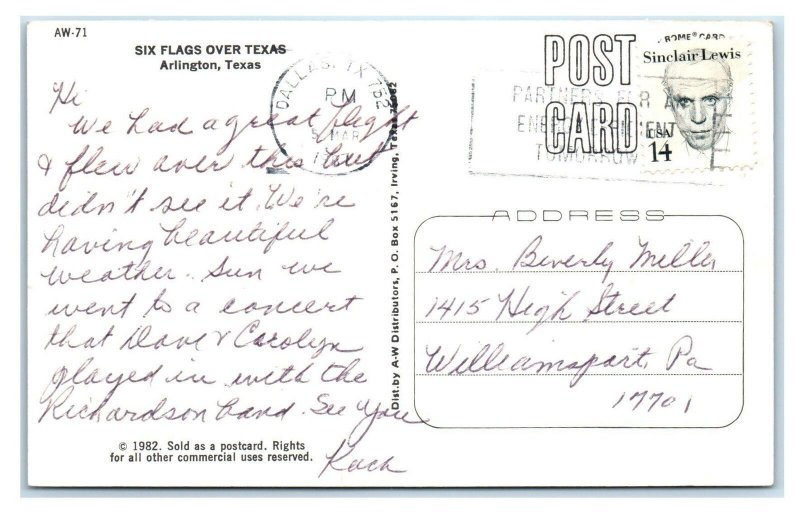 AW-71
SIX FLAGS OVER TEXAS
Arlington, Texas
Hi
We had a great flight
& flew over this but
didn't see it. We're
having beautiful
weather. Sun we
went to a concert
that Dave & Carolyn
played in with the
Richardson band. See you
© 1982. Sold as a postcard. Rights
for all other commercial uses reserved.
Dist. by A-W Distributors, P. O. Box 5167, Irving, Texas 75062
DALLAS, TX 752
PM
5 MAR
POST
CARD
PARTNERS FOR A
TOMORROW
Sinclair Lewis
USA
14
ADDRESS
Mrs. Beverly Miller
1415 High Street
Williamsport, Pa
17701